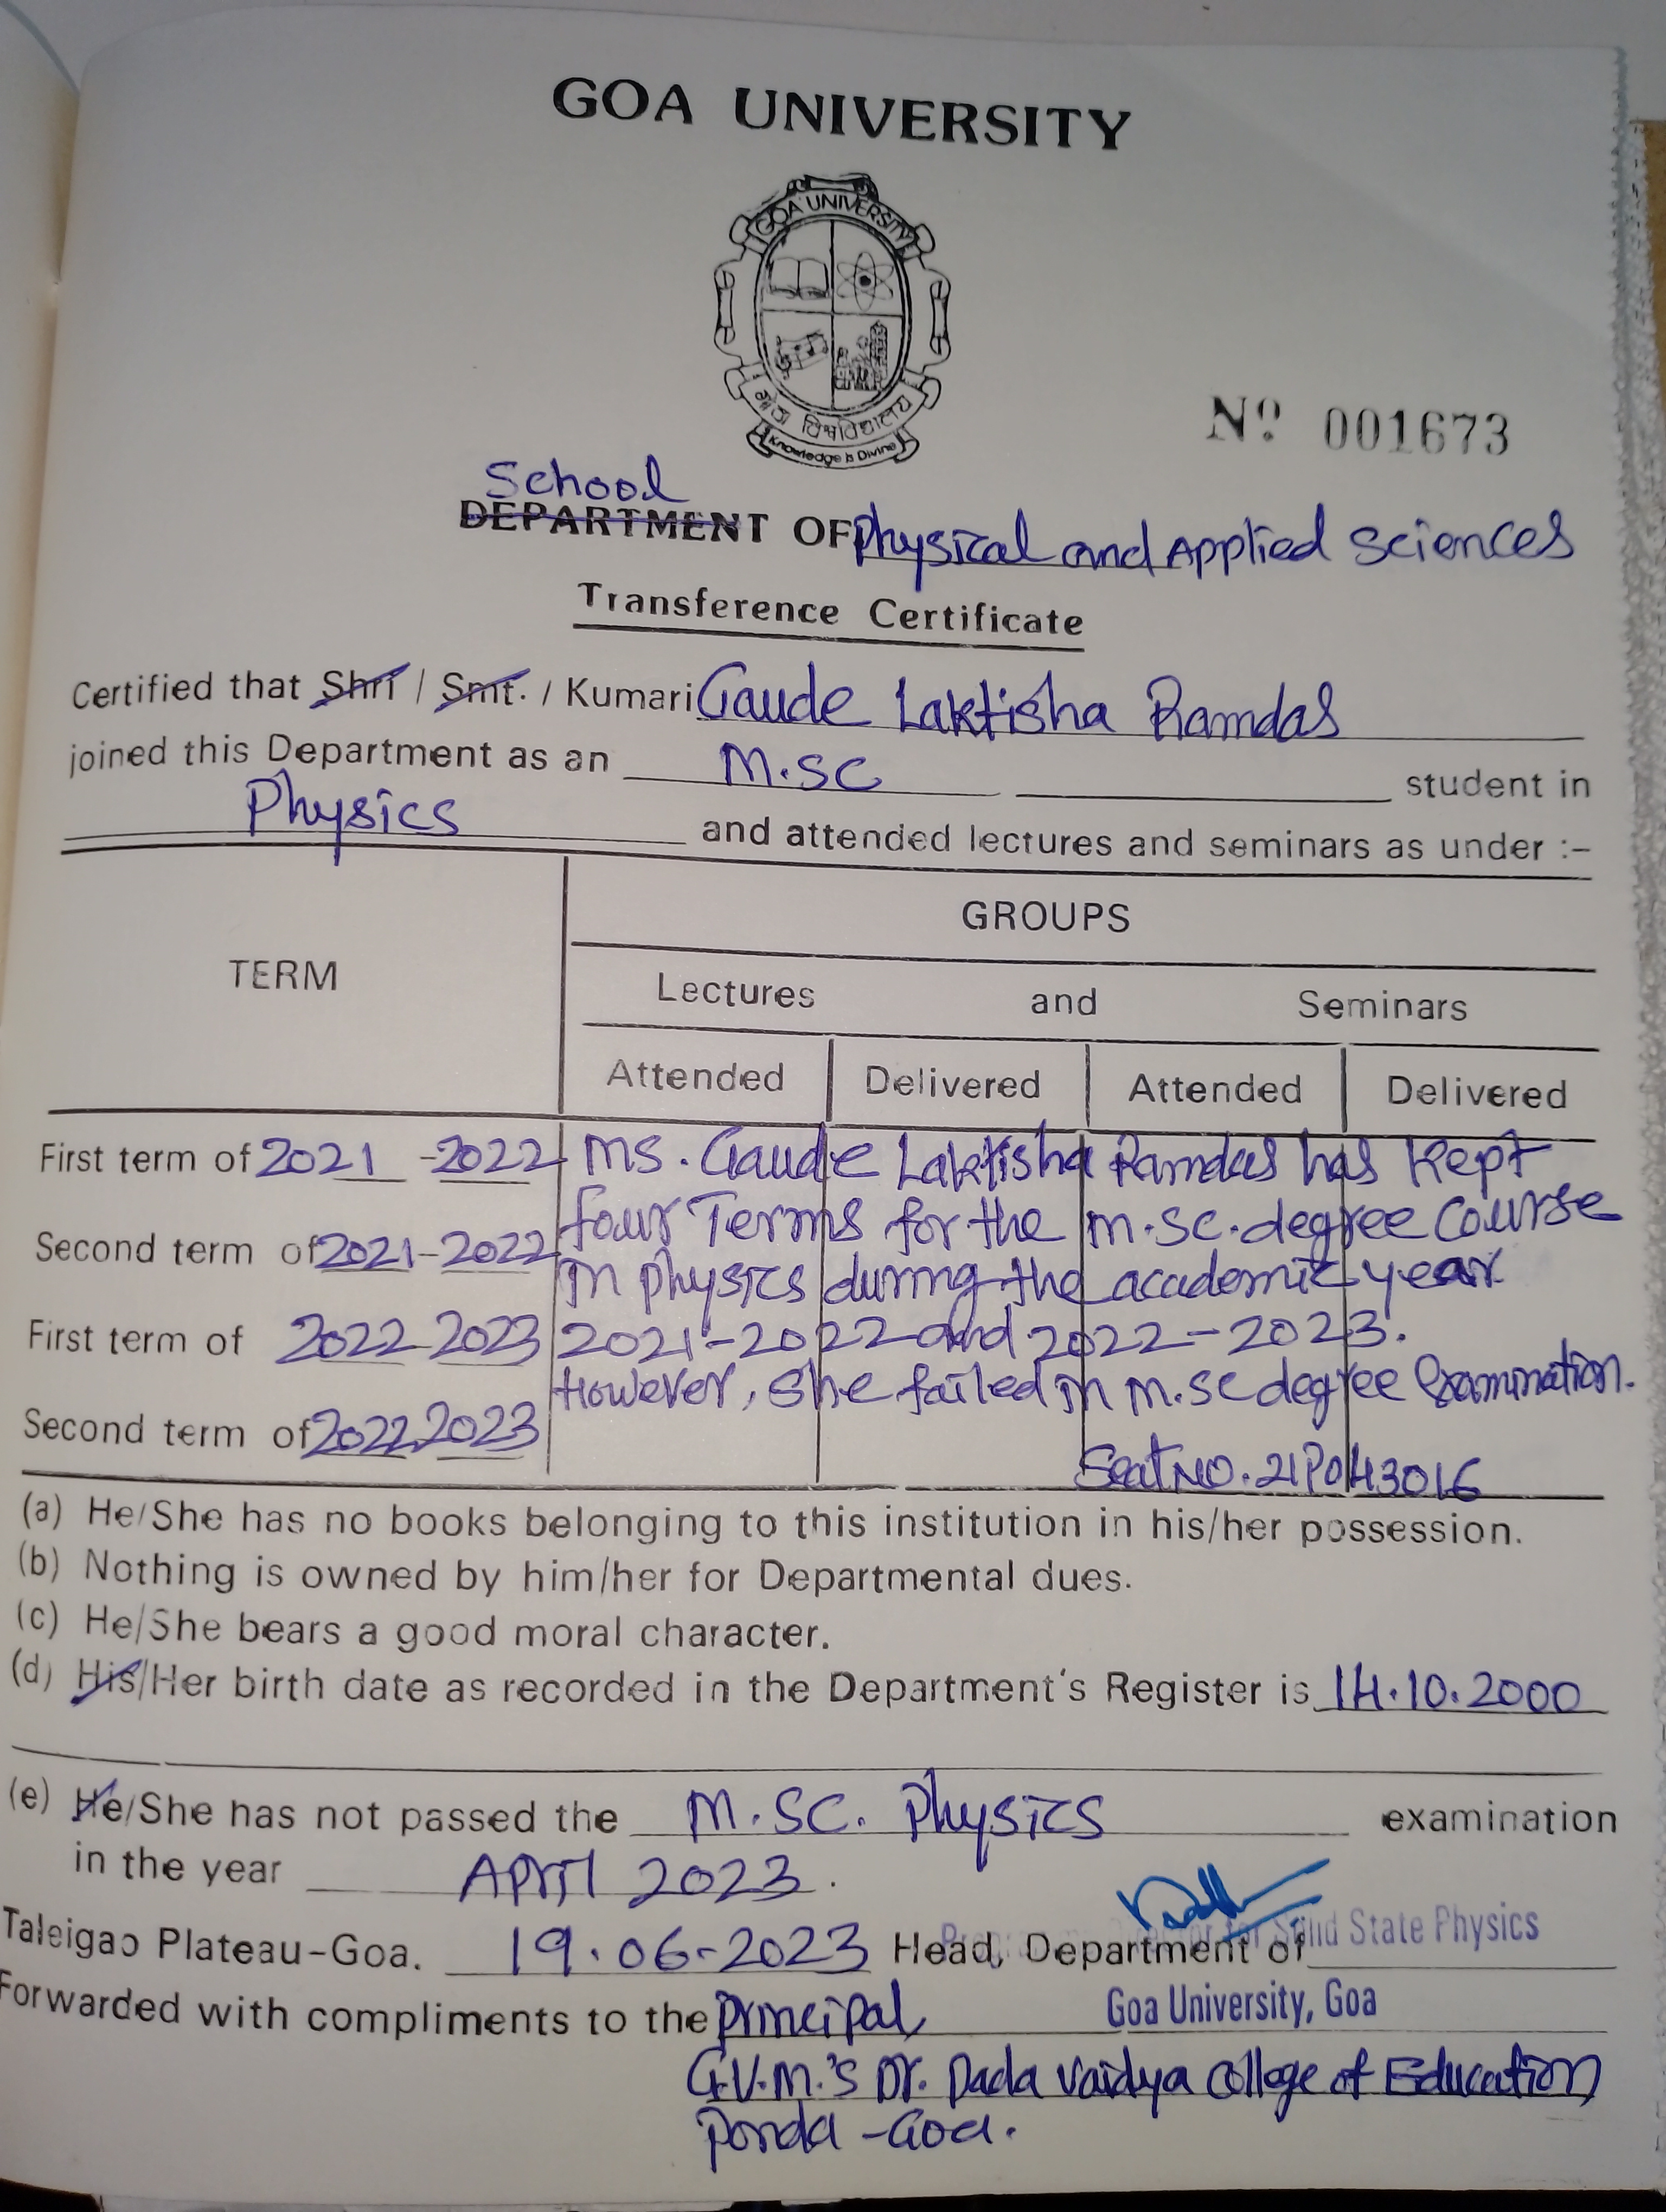 GOA UNIVERSITY
GOA UNIVERSITY
गोंय विश्वविद्यालय
Knowledge is Divine
Nº 001673
School
DEPARTMENT OF Physical and Applied Sciences
Transference Certificate
Certified that Shri / Smt. / Kumari Gaude Laktisha Ramdas
joined this Department as an M.SC student in
Physics and attended lectures and seminars as under :-
TERM
GROUPS
Lectures and Seminars
Attended Delivered Attended Delivered
First term of 2021 - 2022 Ms. Gaude Laktisha Ramdas has kept
four Terms for the M.SC. degree Course
Second term of 2021-2022 in physics during the academic year
First term of 2022 2023 2021-2022 and 2022-2023.
However, she failed in M.SC degree Examination.
Second term of 2022 2023
Seat NO. 21P043016
(a) He/She has no books belonging to this institution in his/her possession.
(b) Nothing is owned by him/her for Departmental dues.
(c) He/She bears a good moral character.
(d) His/Her birth date as recorded in the Department's Register is 14.10.2000
(e) He/She has not passed the M.SC. Physics examination
in the year April 2023.
Taleigao Plateau-Goa. 19.06-2023 Head, Department of Solid State Physics
Goa University, Goa
Forwarded with compliments to the principal
G.V.M.'s Dr. Dada Vaidya College of Education
Ponda - Goa.